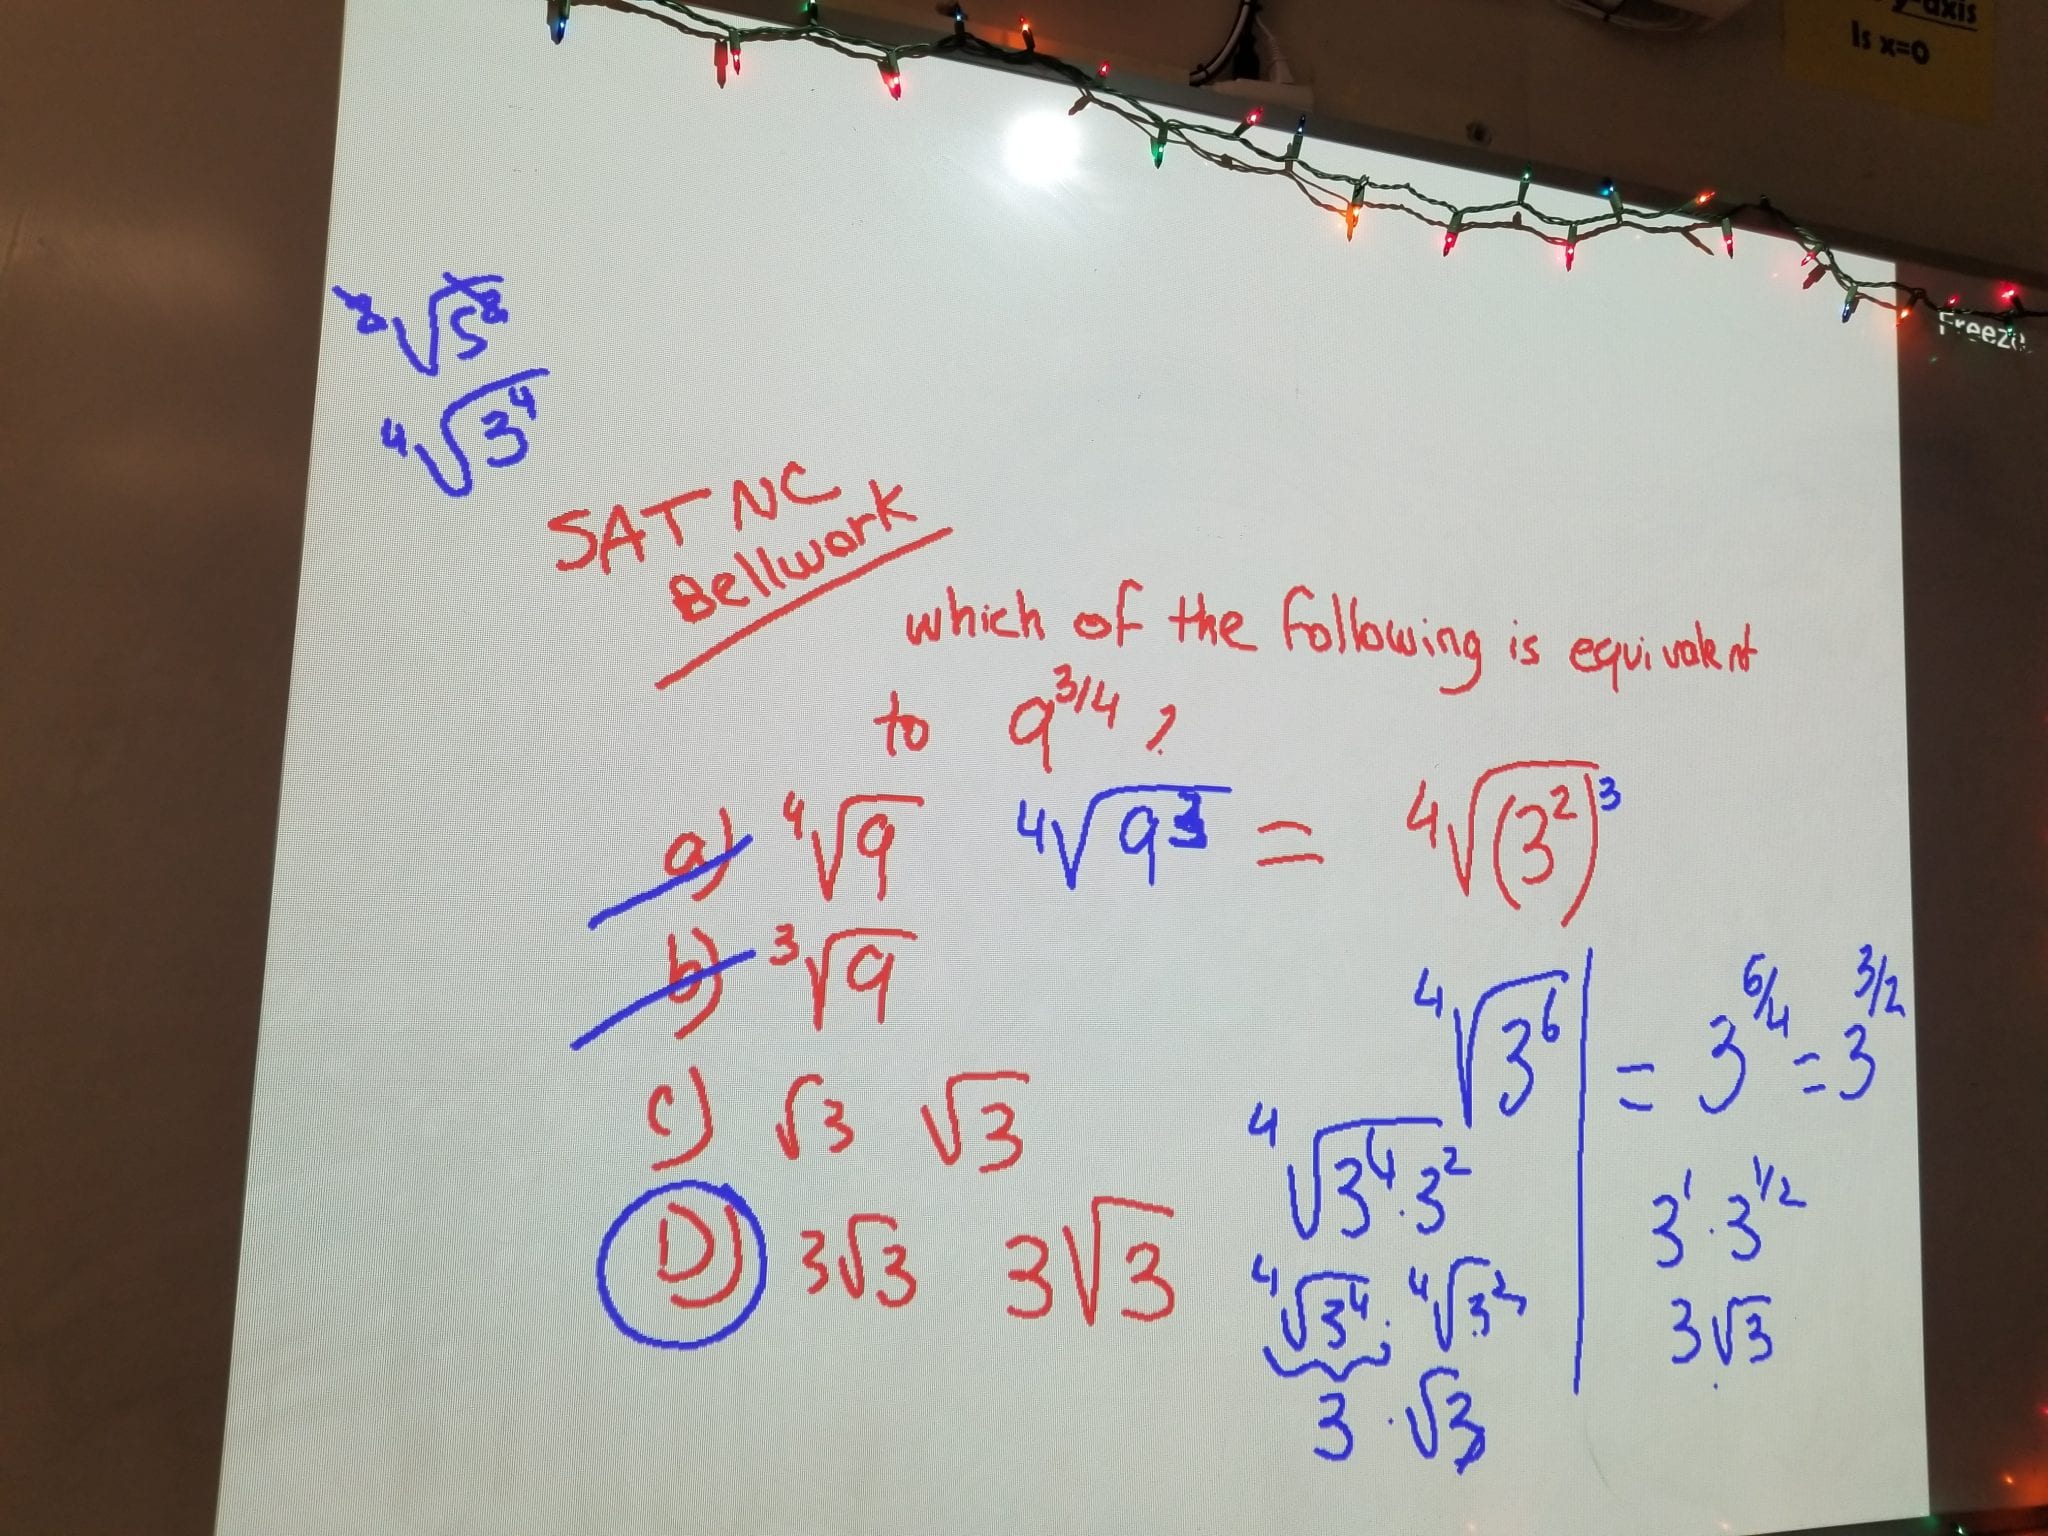 y-axis
Is x=0
Freeze
⁸√5⁸
⁴√3⁴
SAT NC
Bellwork
which of the following is equivalent
to 9^3/4 ?
a) ⁴√9 ⁴√9³ = ⁴√(3²)³
b) ³√9
⁴√3⁶ = 3^6/4 = 3^3/2
c) √3 √3
⁴√3⁴·3²
3¹·3^1/2
D) 3√3 3√3
⁴√3⁴ · ⁴√3²
3√3
3 · √3